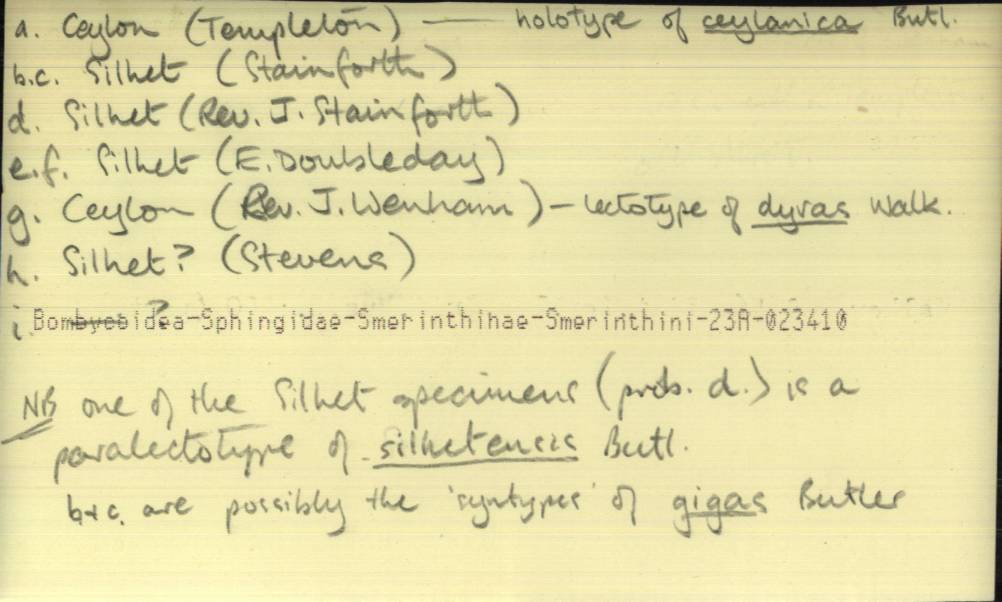 a. Ceylon (Templeton) — holotype of ceylanica Butl.
b.c. Silhet (Stainforth)
d. Silhet (Rev. J. Stainforth)
e.f. Silhet (E. Doubleday)
g. Ceylon (Rev. J. Wenham) — lectotype of dyras Walk.
h. Silhet? (Stevens)
i. ?
Bombycoidea-Sphingidae-Smerinthinae-Smerinthini-23A-023410
NB one of the Silhet specimens (prob. d.) is a
paralectotype of silhetensis Butl.
b+c. are possibly the 'syntypes' of gigas Butler